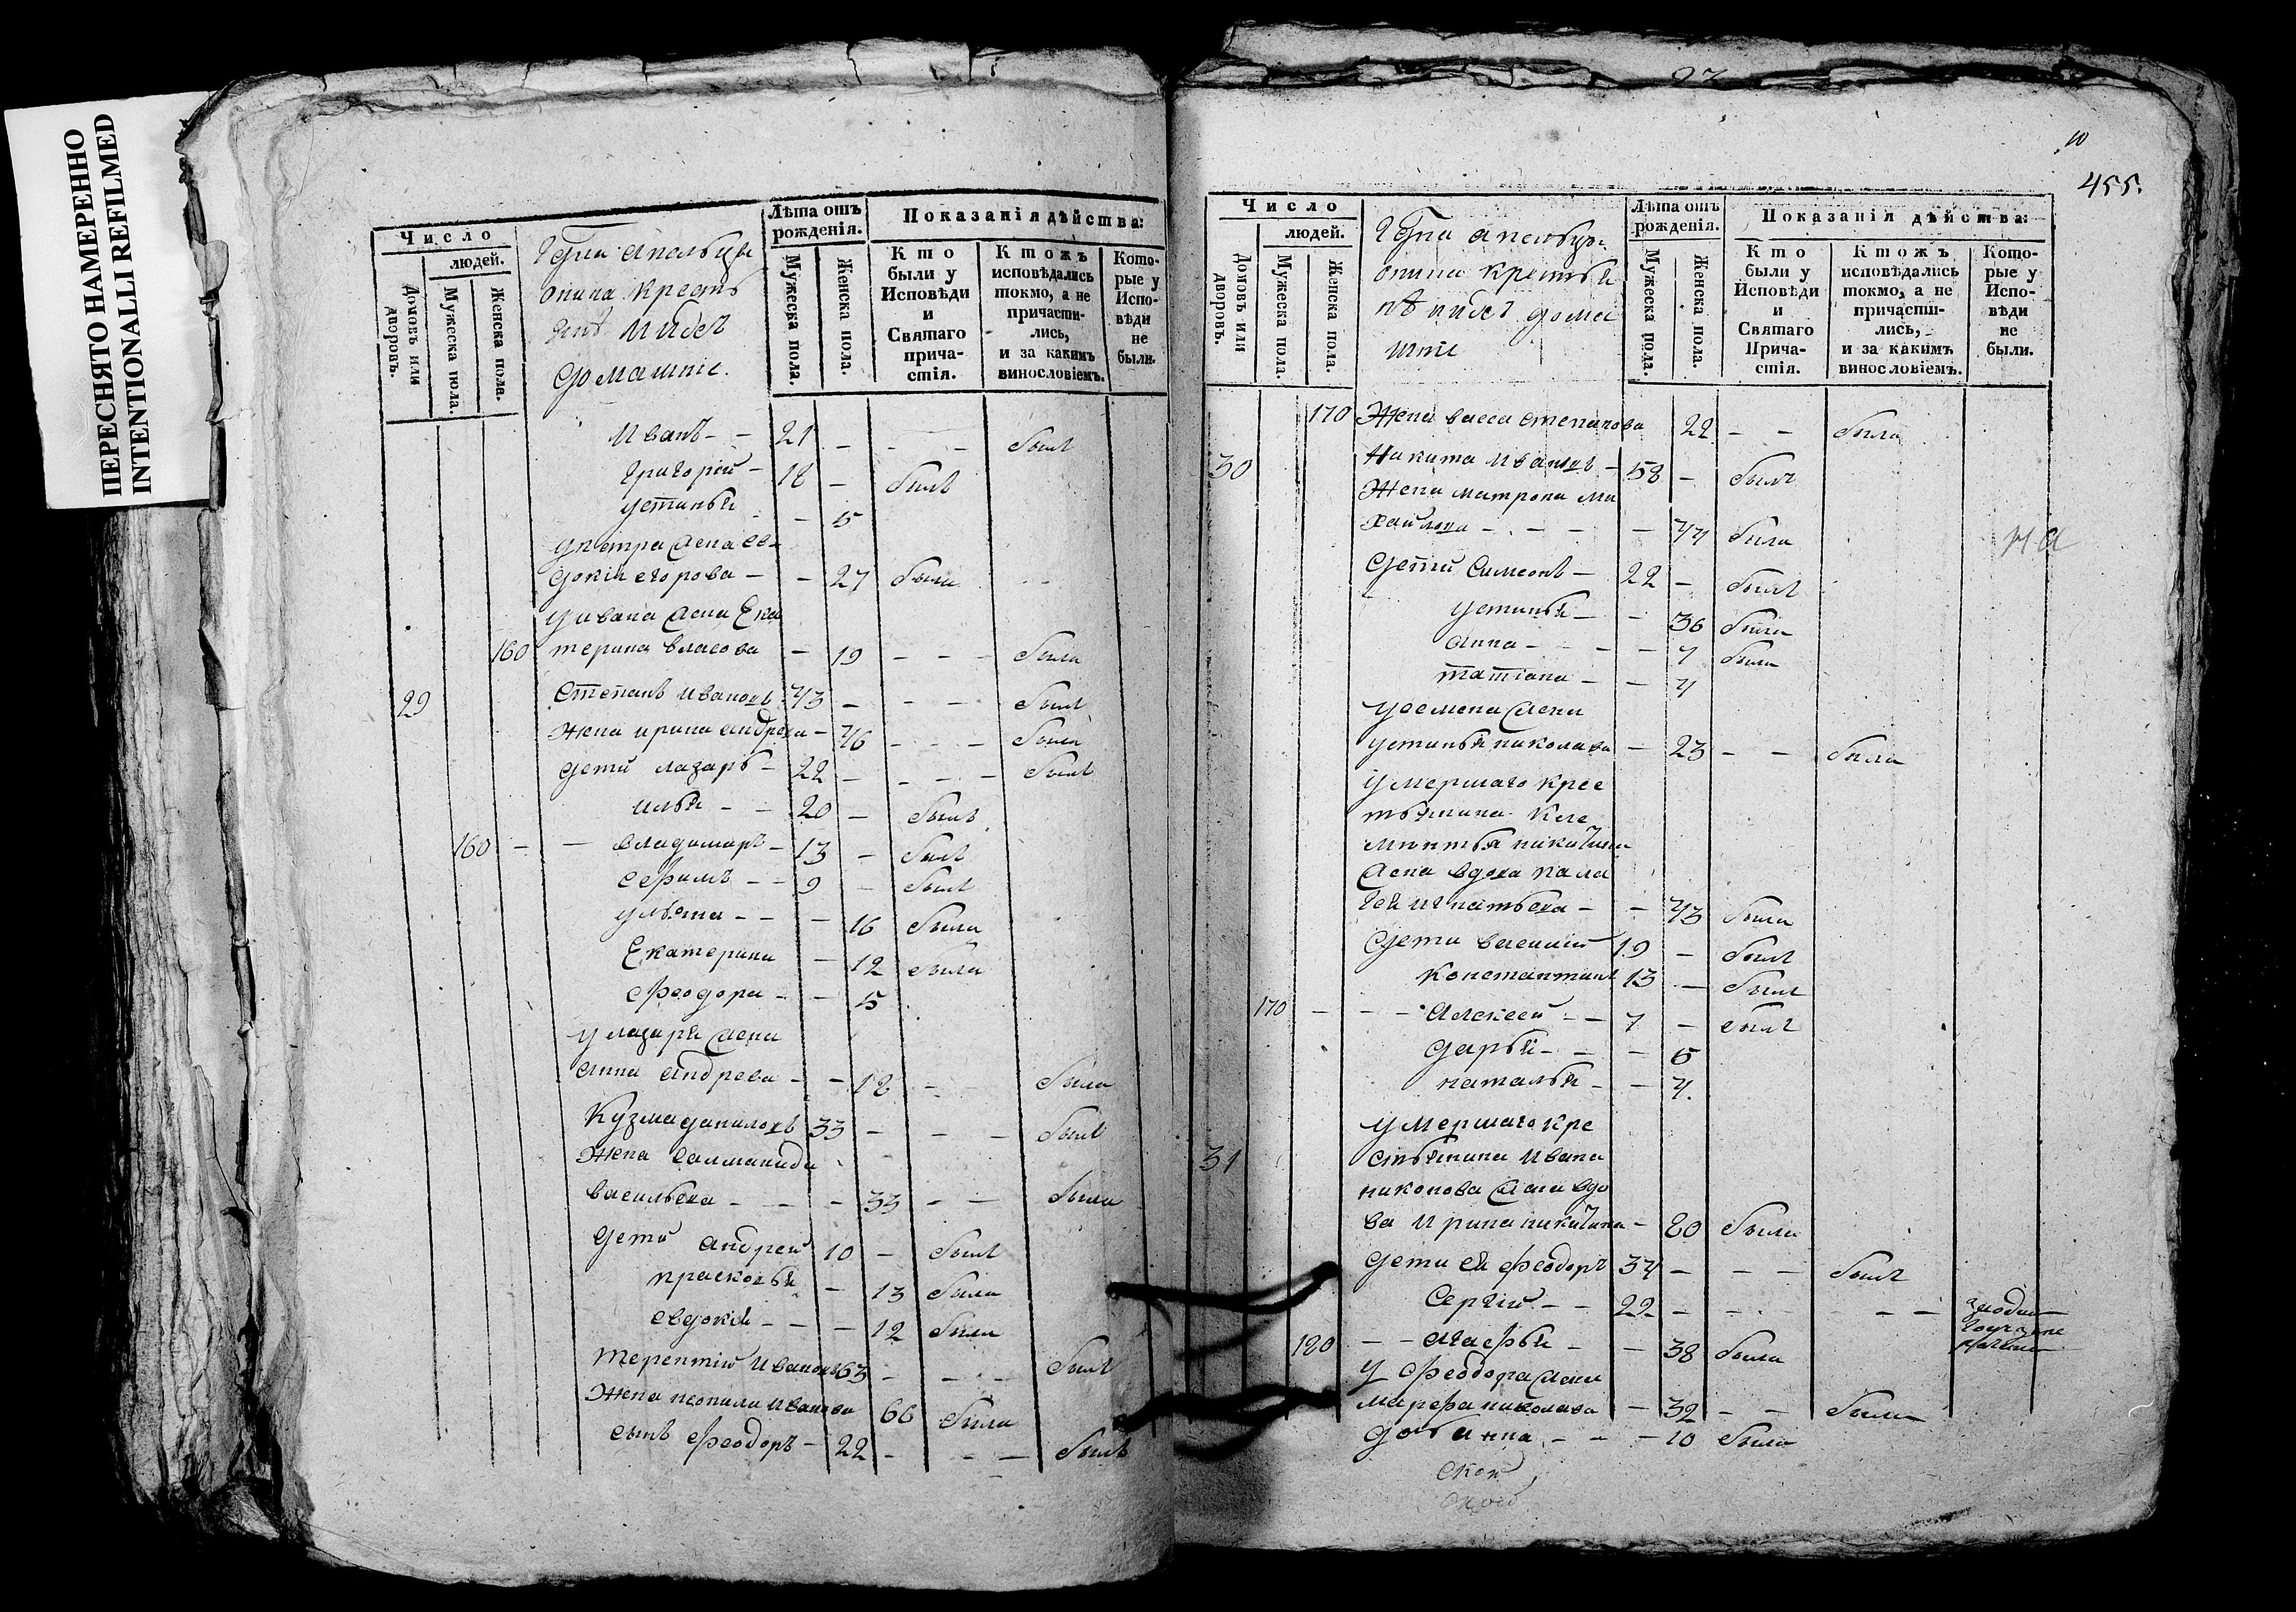 ПЕРЕСНЯТО НАМЕРЕННО
INTENTIONALLI REFILMED
Число
людей.
Домовъ или дворовъ.
Мужеска пола.
Женска пола.
домашніе.
Лѣта отъ рожденія.
Мужеска пола.
Женска пола.
Показанія дѣйства:
Кто были у Исповѣди и Святаго причастія.
Ктожъ исповѣдались токмо, а не причастились, и за какимъ винословіемъ.
Которые у Исповѣди не были.
Иванъ - - 21 - - - - былъ
Григорій - 18 - былъ
Устинья - - 5
у Петра жена Ев
докія Егорова - - 27 была
у Ивана жена Ека
160 терина Власова - 19 - - - была
29 Степанъ Ивановъ 43 - - - былъ
Жена Ирина Андреева - 46 - - - была
Дети Лазарь - 22 - - - - былъ
Илья - - 20 - былъ
160 - - Владимиръ - 13 - былъ
Ефимъ - - 9 - былъ
Ульяна - - - 16 была
Екатерина - 12 была
Феодора - - 5
у Лазаря жена
Анна Андреева - - 18 - была
Кузма Даниловъ 33 - - - былъ
Жена Соломанида
Васильева - - - 33 - - была
Дети Андрей 10 - былъ
Прасковья - 13 была
Евдокия - - - 12 была
Терентий Ивановъ 63 - - - былъ
Жена Неонила Иванова 66 была
сынъ Феодоръ - 22 - - - былъ
10
455.
Число
людей.
Домовъ или дворовъ.
Мужеска пола.
Женска пола.
Лѣта отъ рожденія.
Мужеска пола.
Женска пола.
Показанія дѣйства:
Кто были у Исповѣди и Святаго Причастія.
Ктожъ исповѣдались токмо, а не причастились, и за какимъ винословіемъ.
Которые у Исповѣди не были.
170 Жена Васса Степанова 22 - - была
30 Никита Ивановъ - 58 - былъ
Жена Матрона Ми
хайлова - - - - - 44 была
Дети Симеонъ - 22 - былъ
Устинья - - 36 была
Анна - - - - 7 была
Татіана - - 4
у Семена жена
Устинья Николаева - 23 - - была
Умершаго крес
тьянина Кле
ментья Никитина
жена вдова Пела
гея Игнатьева - - 43 была
Дети Василий 19 - былъ
Константинъ 13 - былъ
170 - - Алексей - - 7 - былъ
Дарья - - - 5
Наталья - - 4.
31 Умершаго кре
стьянина Ивана
Никонова жена вдо
ва Ирина Никитина - 80 была
Дети ея Феодоръ 34 - - - былъ
Сергій - - 22 - - - - -
180 - - Марья - - 38 была
у Феодора жена
Марфа Николаева - 32 - - была
дочь Анна - - - 10 была